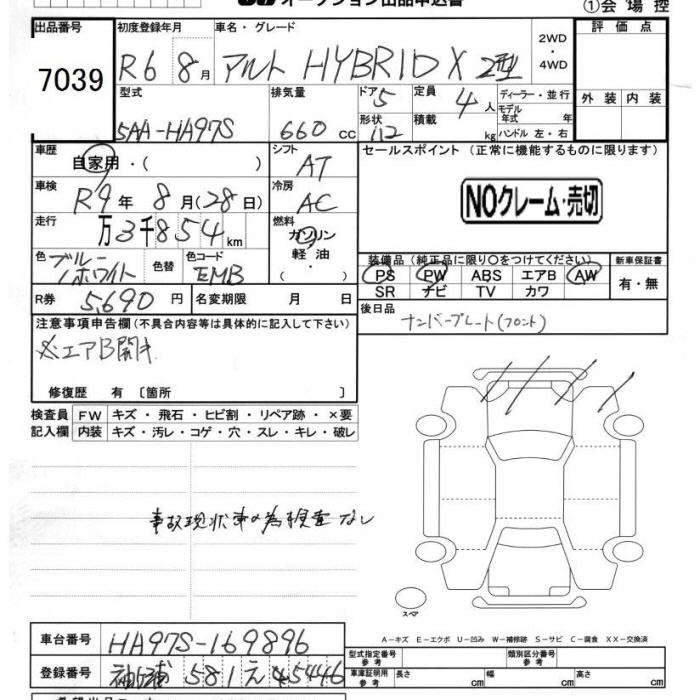 オークション出品申込書
①会場控
出品番号 初度登録年月 車名・グレード 評価点
7039 R6 8月 アルト HYBRID X 2型 2WD・4WD
型式 排気量 ドア 5 定員 4人 ディーラー・並行 外装 内装
5AA-HA97S 660 cc 形状 112 積載 kg モデル年式 年式
ハンドル 左・右
車歴 自家用・( ) シフト AT セールスポイント(正常に機能するものに限ります)
車検 R9年 8月(28日) 冷房 AC NOクレーム・売切
走行 万3千854km 燃料 ガソリン 軽油・( )
色 ブルー/ホワイト 色替 色コード EMB 装備品(純正品に限り○をつけてください) 新車保証書
PS PW ABS エアB AW 有・無
SR ナビ TV カワ
R券 5,690円 名変期限 月 日 後日品 ナンバープレート(フロント)
注意事項申告欄(不具合内容等は具体的に記入して下さい)
※エアB開き
修復歴 有 〔箇所 〕
検査員 FW キズ・飛石・ヒビ割・リペア跡・×要
記入欄 内装 キズ・汚レ・コゲ・穴・スレ・キレ・破レ
事故現状車の為検査なし
スペア
A-キズ E-エクボ U-凹み W-補修跡 S-サビ C-腐食 XX-交換済
車台番号 HA97S-169896 型式指定番号 参考 類別区分番号 参考
登録番号 袖ヶ浦 581 え 45446 車庫証明用 参考 長さ cm 幅 cm 高さ cm